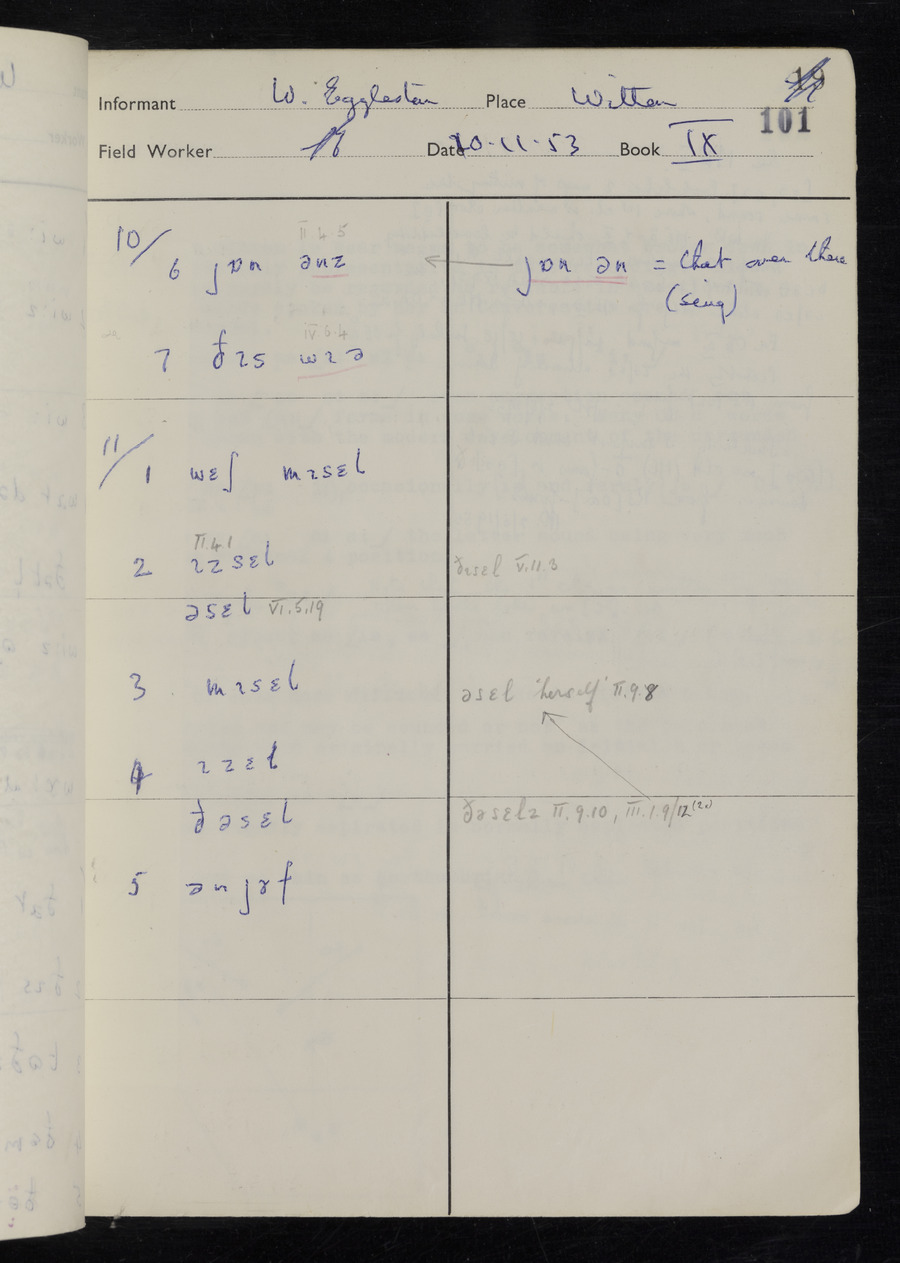 Informant W. Eggleston Place Witton
101
Field Worker Date 10.11.53 Book IX
10/
II 4 5
6 jɒn ənz
jɒn ən = that over there
(sing)
IV 6.4
7 ðɪs wɪə
11/
1 wɛʃ mɪsɛl
II.4.1
2 ɪzsɛl
ðɪsɛl V.11.3
əsɛl VI.5.19
3 mɪsɛl
əsɛl 'herself' II.9.8
4 ɪzɛl
ðəsɛl
ðəsɛlz II.9.10, III.1.9/12(2x)
5 ən jɤf